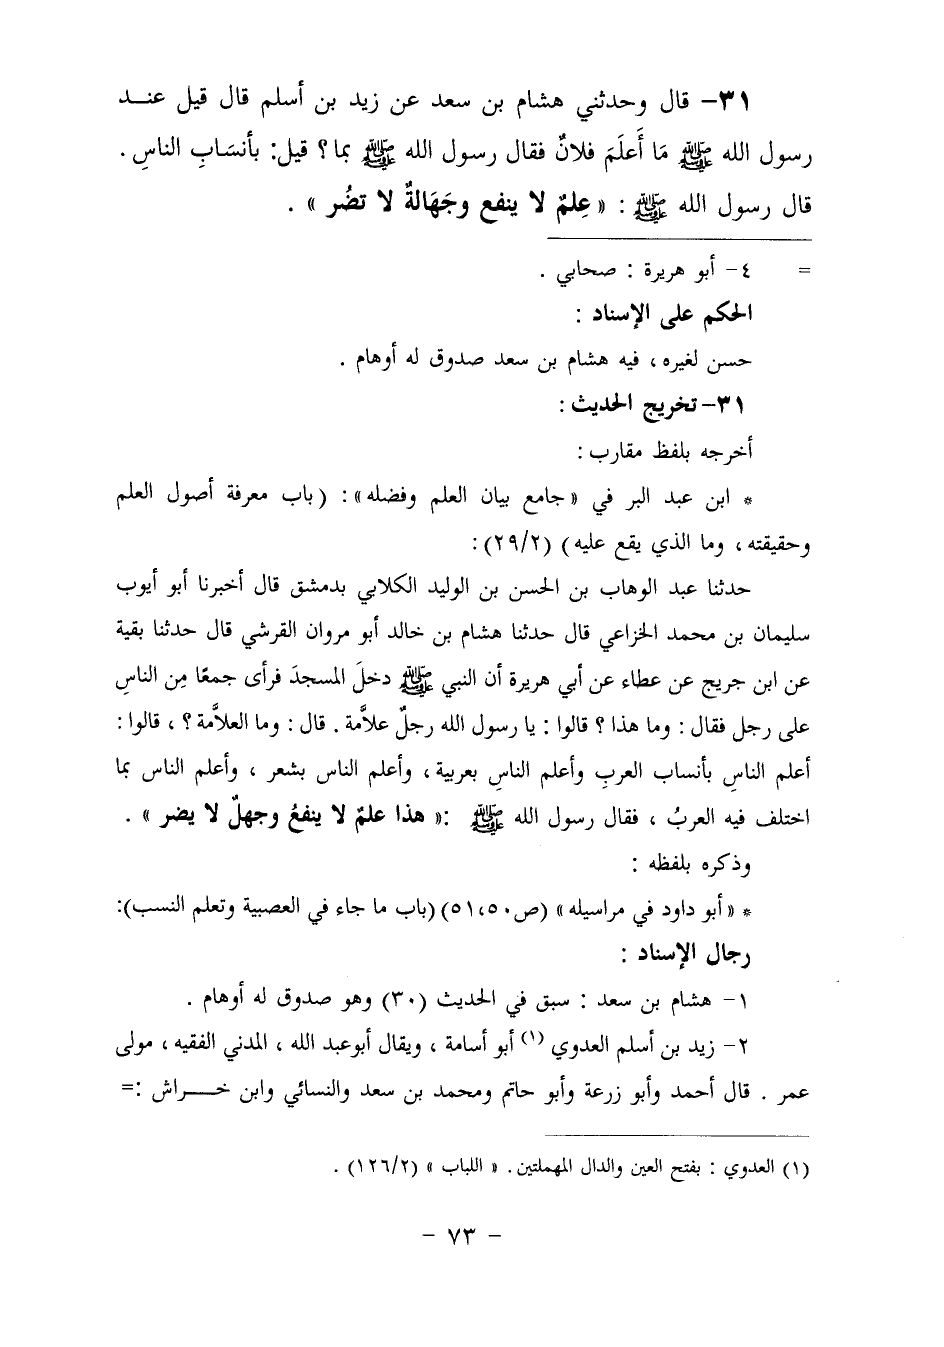 ٣١- قال وحدثني هشام بن سعد عن زيد بن أسلم قال قيل عنـــد
رسول الله ﷺ مَا أَعلَمَ فلانٌ فقال رسول الله ﷺ بما؟ قيل: بأنسَابِ الناسِ .
قال رسول الله ﷺ : « عِلمٌ لا ينفع وجَهَالةٌ لا تضُر » .
= ٤- أبو هريرة : صحابي .
الحكم على الإسناد :
حسن لغيره ، فيه هشام بن سعد صدوق له أوهام .
٣١- تخريج الحديث :
أخرجه بلفظ مقارب :
* ابن عبد البر في «جامع بيان العلم وفضله»: (باب معرفة أصول العلم
وحقيقته ، وما الذي يقع عليه) (٢٩/٢):
حدثنا عبد الوهاب بن الحسن بن الوليد الكلابي بدمشق قال أخبرنا أبو أيوب
سليمان بن محمد الخزاعي قال حدثنا هشام بن خالد أبو مروان القرشي قال حدثنا بقية
عن ابن جريج عن عطاء عن أبي هريرة أن النبي ﷺ دخلَ المسجدَ فرأى جمعًا مِن الناسِ
على رجل فقال : وما هذا ؟ قالوا : يا رسول الله رجلٌ علاَّمة . قال : وما العلاَّمة ؟ ، قالوا :
أعلم الناسِ بأنساب العربِ وأعلم الناسِ بعربية ، وأعلم الناس بشعر ، وأعلم الناس بما
اختلف فيه العربُ ، فقال رسول الله ﷺ :« هذا علمٌ لا ينفعُ وجهلٌ لا يضر » .
وذكره بلفظه :
* «أبو داود في مراسيله» (ص٥٠،٥١) (باب ما جاء في العصبية وتعلم النسب):
رجال الإسناد :
١- هشام بن سعد : سبق في الحديث (٣٠) وهو صدوق له أوهام .
٢- زيد بن أسلم العدوي (١) أبو أسامة ، ويقال أبوعبد الله ، المدني الفقيه ، مولى
عمر . قال أحمد وأبو زرعة وأبو حاتم ومحمد بن سعد والنسائي وابن خــــراش :=
(١) العدوي : بفتح العين والدال المهملتين . « اللباب » (١٢٦/٢) .
- ٧٣ -